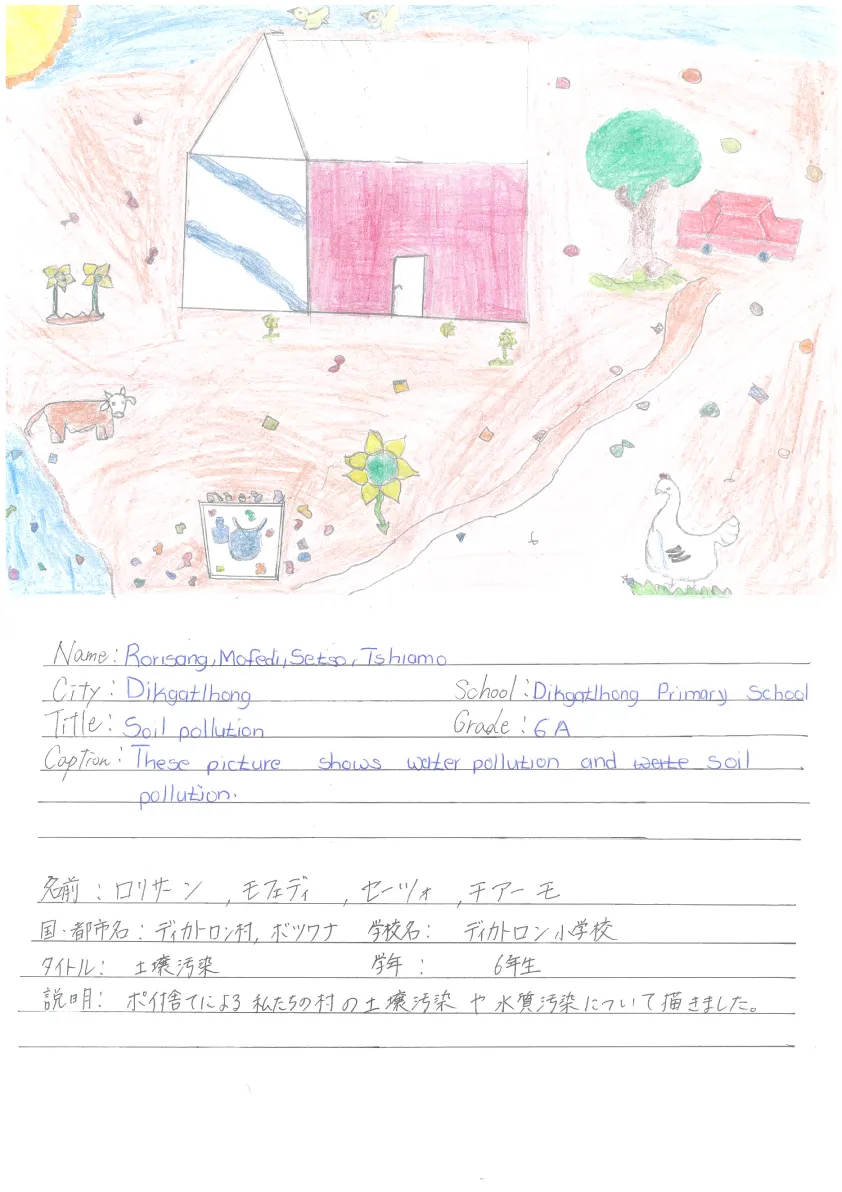 Name: Rorisang, Mofedi, Setso, Tshiamo
City: Dikgatlhong School: Dikgatlhong Primary School
Title: Soil pollution Grade: 6A
Caption: These picture shows water pollution and waste soil
pollution.
名前: ロリサーン , モフェディ , セーツォ , チアーモ
国・都市名: ディカトロン村, ボツワナ 学校名: ディカトロン小学校
タイトル: 土壌汚染 学年: 6年生
説明: ポイ捨てによる私たちの村の土壌汚染や水質汚染について描きました。